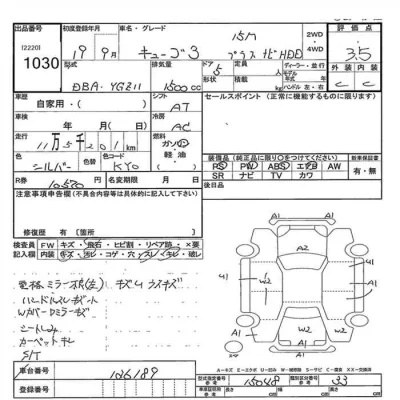 出品番号 初度登録年月 車名・グレード 2WD・4WD 評価点
[2220] 1030 19年9月 キューブ3 15M プラスナビHDD 3.5
型式 排気量 ドア 形状 定員 積載量 kg ディーラー・並行 モデル 年式 ハンドル 左・右 外装 内装
DBA-YGZ11 1500cc 5 C C
車歴 自家用・( ) シフト AT セールスポイント(正常に機能するものに限ります)
車検 年 月( 日) 冷房 AC
走行 11万5千201km 燃料 ガソリン・軽油
色 シルバー 色替 色コード KY0
装備品(純正品に限り○をつけてください) 新車保証書
PS PW ABS エアB AW 有・無
SR ナビ TV カワ
R券 10,550 名変期限 月 日 後日品
注意事項申告欄(不具合内容等は具体的に記入して下さい)
修復歴 有[箇所
検査員記入欄 FW キズ・飛石・ヒビ割・リペア跡・×要
内装 キズ・汚レ・コゲ・穴・スレ・キレ・破レ
電格ミラー不良(左) キズU ラスキズ
ハンドルスレ
W/カバー Dミラーキズ
シートしみ
カーペットキレ
S/T
A1 A1 A2 U1 U1 W2 A1 W2 A1 A1
A-キズ E-エクボ U-凹み W-補修跡 S-サビ C-腐食 X-要交換 XX-交換済
車台番号 126189 型式指定番号 参考 15048 類別区分番号 参考 33
登録番号 長さ cm 幅 cm 高さ cm